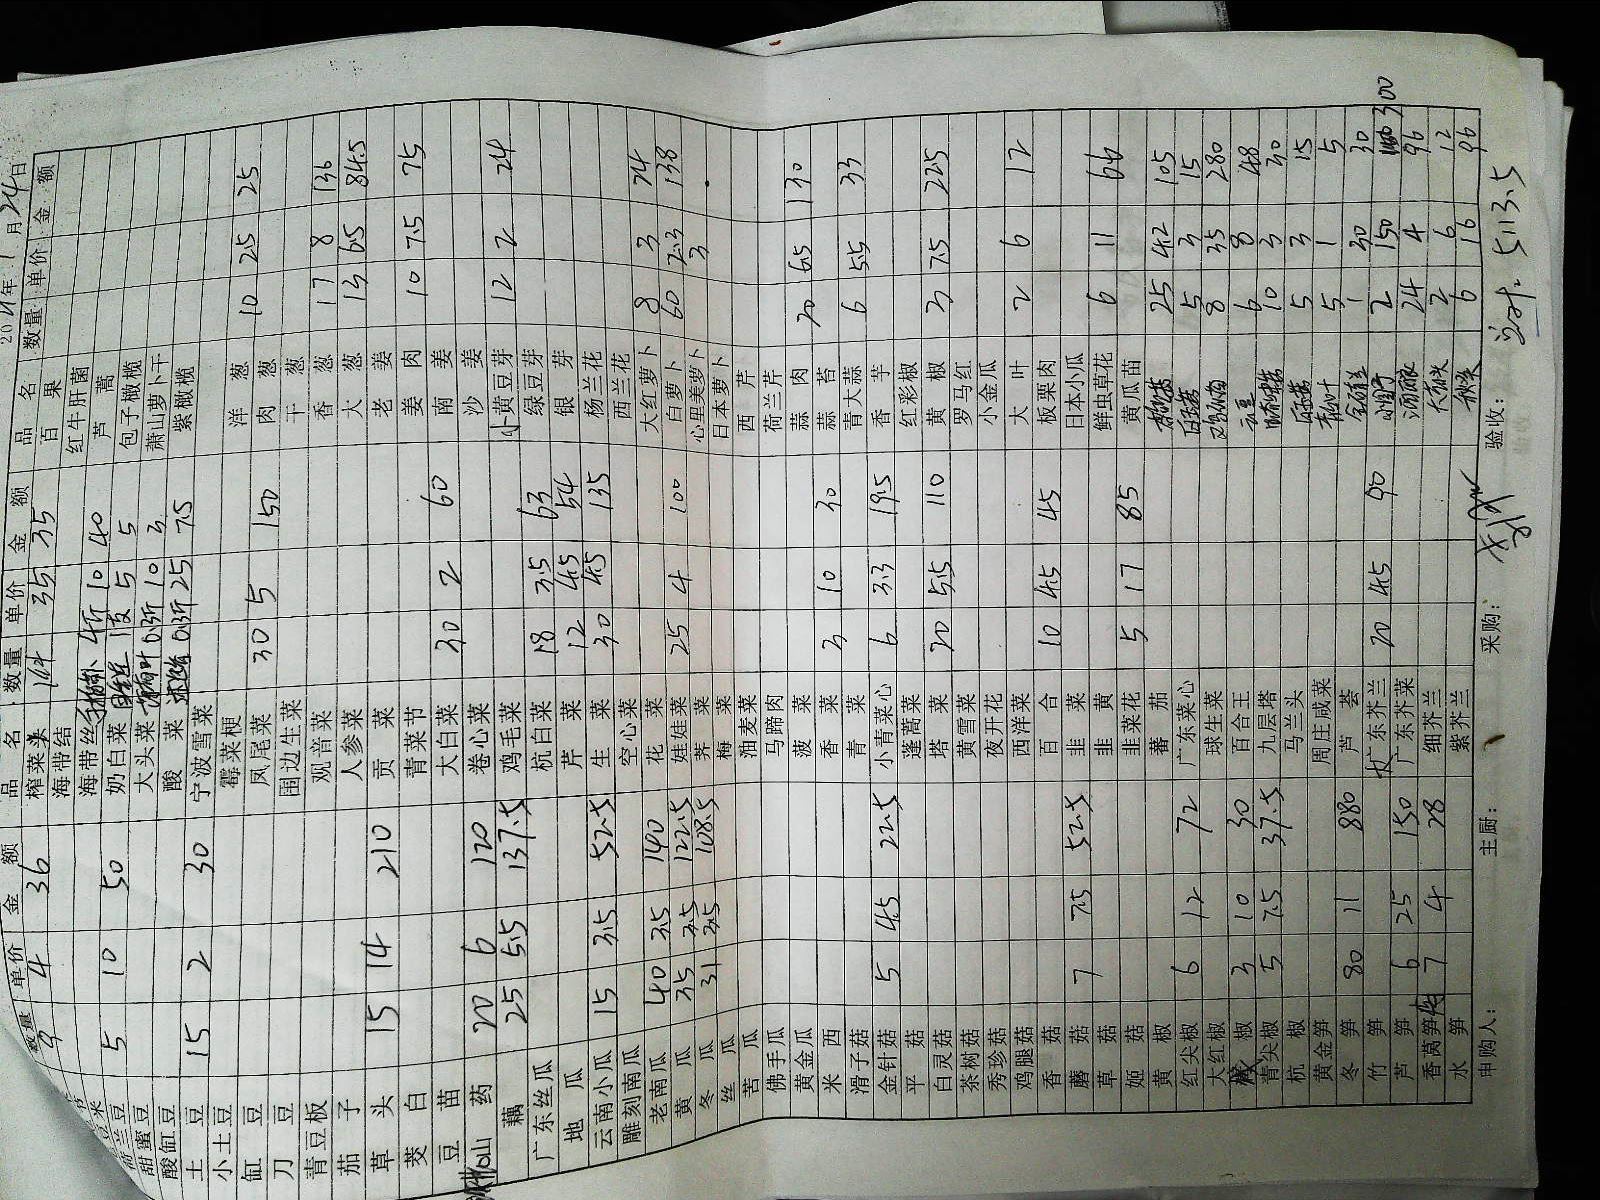 2011年1月24日
品名 数量 单价 金额 品名 数量 单价 金额 品名 数量 单价 金额
9 4 36 榨菜头 35 35 百果
海带结 红牛肝菌
荷兰豆 海带丝 4斤 10 40 芦蒿
甜蜜豆 5 10 50 奶白菜 1支 5 5 包子橄榄
酸豇豆 大头菜 0.3斤 10 3 萧山萝卜干
土豆 15 2 30 酸菜 0.3斤 25 7.5 紫橄榄
小土豆 宁波雪菜
豇豆 霉菜梗 洋葱 10 2.5 25
刀豆 凤尾菜 30 5 150 肉葱
青豆板 围边生菜 干葱
茄子 观音菜 香葱 17 8 136
草头 15 14 210 人参菜 大葱 13 6.5 84.5
茭白 贡菜 老姜
豆苗 青菜节 姜肉 10 7.5 75
山药 20 6 120 大白菜 30 2 60 南姜
藕 25 5.5 137.5 卷心菜 沙姜
广东丝瓜 鸡毛菜 黄豆芽 12 2 24
地瓜 杭白菜 18 3.5 63 绿豆芽
云南小瓜 15 3.5 52.5 芹菜 12 4.5 54 银芽
雕刻南瓜 生菜 30 4.5 135 杨兰花
老南瓜 40 3.5 140 空心菜 西兰花
黄瓜 35 3.5 122.5 花菜 25 4 100 大红萝卜 8 3 24
冬瓜 31 3.5 108.5 娃娃菜 白萝卜 60 2.3 138
丝瓜 荠菜 心里美萝卜 3
苦瓜 梅菜 日本萝卜
佛手瓜 油麦菜 西芹
黄金瓜 马蹄肉 荷兰芹
米西 菠菜 蒜肉 20 6.5 130
滑子菇 香菜 3 10 30 蒜苔
金针菇 5 4.5 22.5 青菜 青大蒜 6 5.5 33
平菇 小青菜心 6 3.3 19.5 香芋
白灵菇 蓬蒿菜 红彩椒
茶树菇 塔菜 20 5.5 110 黄椒 3 7.5 22.5
秀珍菇 黄雪菜 罗马红
鸡腿菇 夜开花 小金瓜
香菇 西洋菜 大叶 2 6 12
蘑菇 7 7.5 52.5 百合 10 4.5 45 板栗肉
草菇 韭菜 日本小瓜
姬菇 韭黄 5 17 85 鲜虫草花 6 11 66
黄椒 韭菜花 黄瓜苗
红尖椒 6 12 72 蕃茄 25 4.2 105
大红椒 广东菜心 5 3 15
椒 3 10 30 球生菜 8 35 280
青尖椒 5 7.5 37.5 百合王 6 8 48
杭椒 九层塔 10 3 30
黄金笋 马兰头 5 3 15
冬笋 80 11 880 周庄咸菜 5 1 5
竹笋 芦荟 1 30 30
芦笋 6 25 150 广东芥兰 20 4.5 90 2 150 300
香莴笋 7 4 28 广东芥菜 24 4 96
水笋 细芥兰 2 6 12
紫芥兰 6 16 96
申购人： 主厨： 采购： 验收： 5113.5